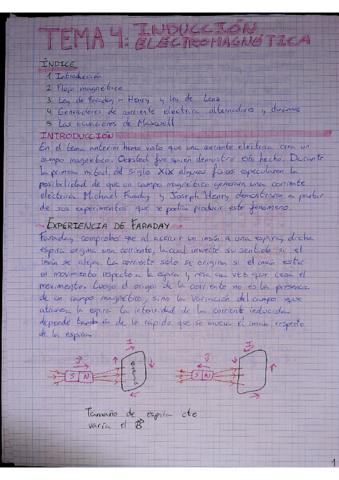 TEMA 4: INDUCCIÓN
ELECTROMAGNÉTICA
ÍNDICE
1 Introducción
2 Flujo magnético
3 Ley de Faraday - Henry y ley de Lenz
4 Generadores de corriente eléctrica alternadores y dinamos
5 Las ecuaciones de Maxwell
INTRODUCCIÓN
En el tema anterior hemos visto que una corriente eléctrica crea un
campo magnético. Oersted fue quien demostró este hecho. Durante
la primera mitad del siglo XIX algunos físicos especularon la
posibilidad de que un campo magnético generara una corriente
eléctrica. Michael Faraday y Joseph Henry demostraron a partir
de sus experimentos que se podía producir este fenómeno.
EXPERIENCIA DE FARADAY
Faraday comprobó que al acercar un imán a una espira, dicha
espira origina una corriente, la cual invierte su sentido si el
imán se aleja. La corriente solo se origina si el imán está
en movimiento respecto a la espira y una vez que cesa el
movimiento. Luego el origen de la corriente no es la presencia
de un campo magnético, sino la variación del campo que
atraviesa la espira. La intensidad de la corriente inducida
depende también de lo rápido que se mueva el imán respecto
de la espira.
I
V
S N
I
V
S N
Tamaño de espira cte
varía el B
1